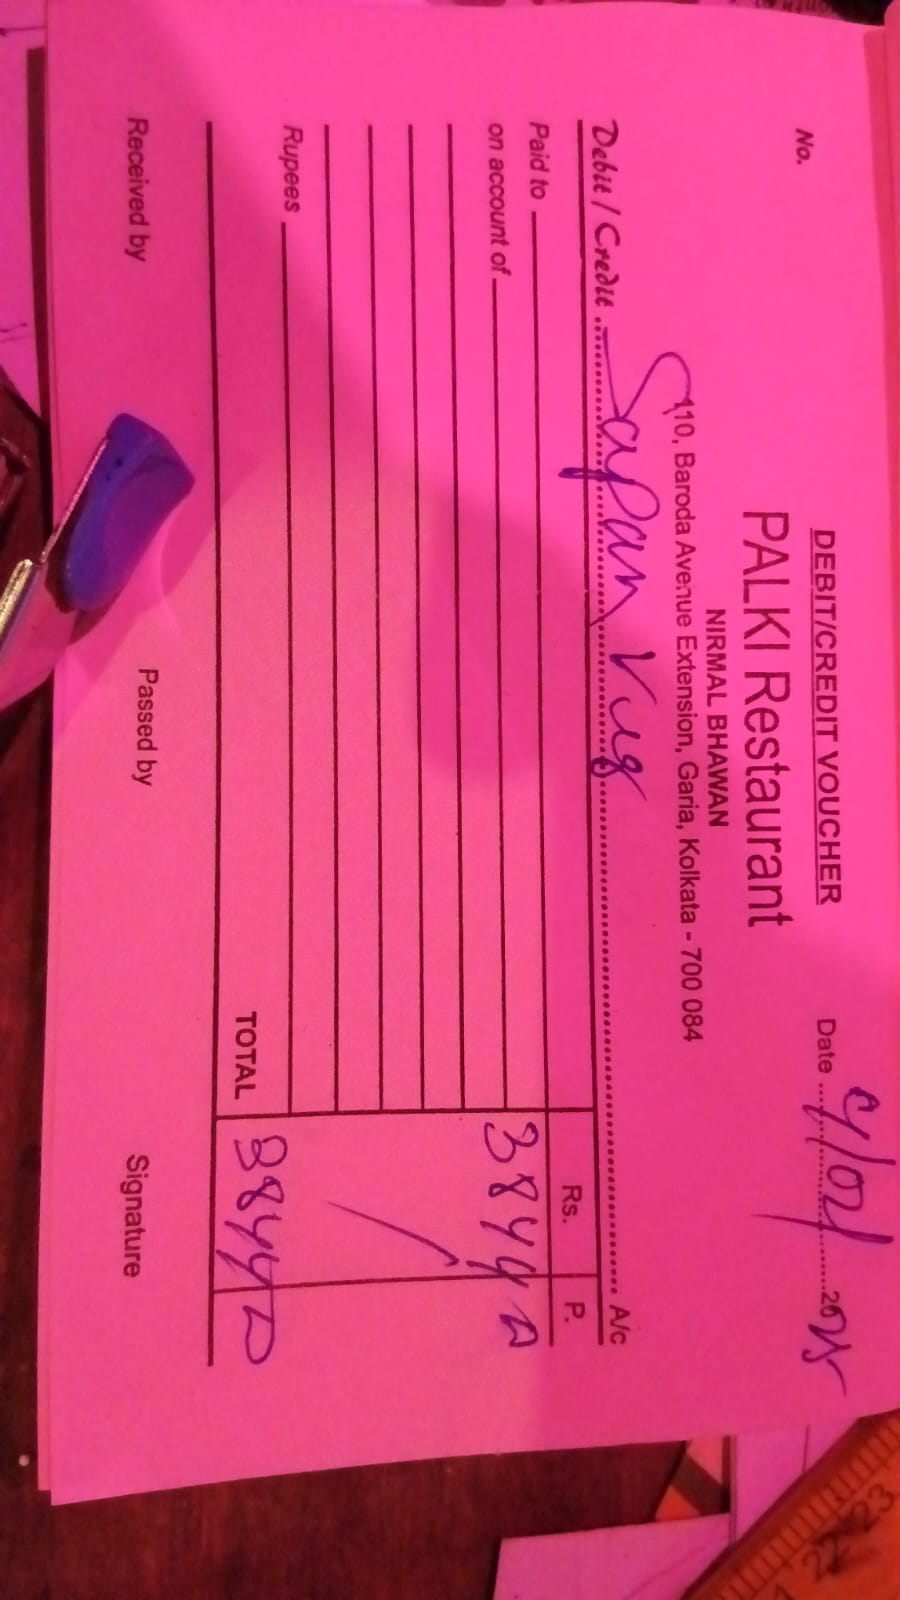 DEBIT/CREDIT VOUCHER
No.
Date 4/02/2025
PALKI Restaurant
NIRMAL BHAWAN
110, Baroda Avenue Extension, Garia, Kolkata - 700 084
Debit / Credit Sapan Veg A/c
Paid to Rs. P.
on account of 3844
Rupees
TOTAL 3844
Received by Passed by Signature
22 23